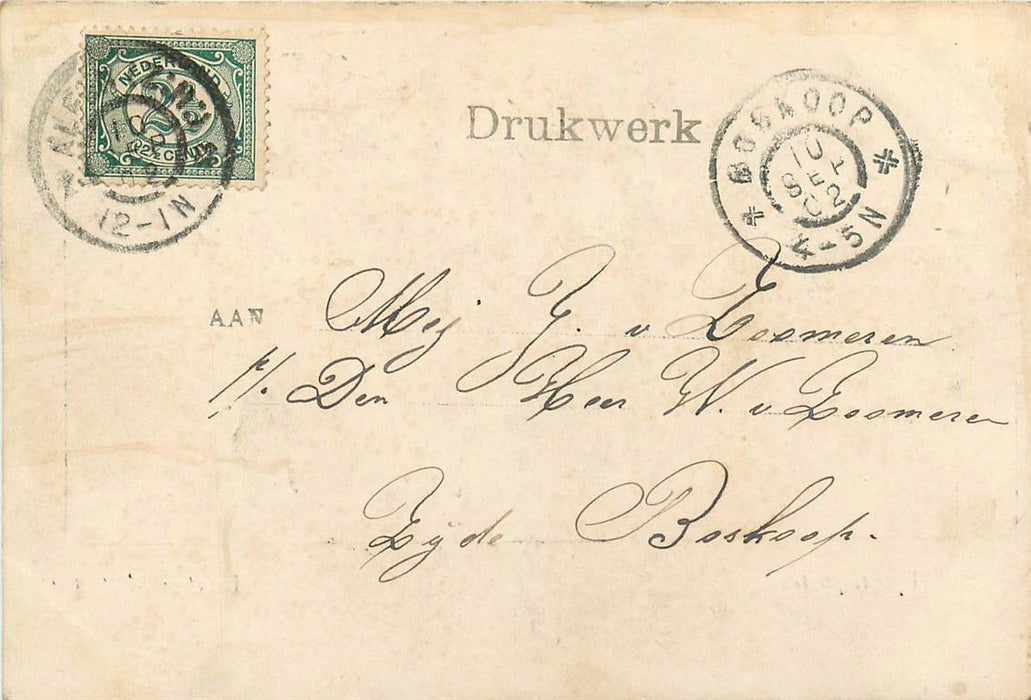 NEDERLAND
2½
2½ CENT
12-1N
Drukwerk
BOSKOOP
10
SEP
02
4-5N
AAN
Mej J. v Zoomeren
p/. Den Heer W. v Zoomeren
Zijde Boskoop.